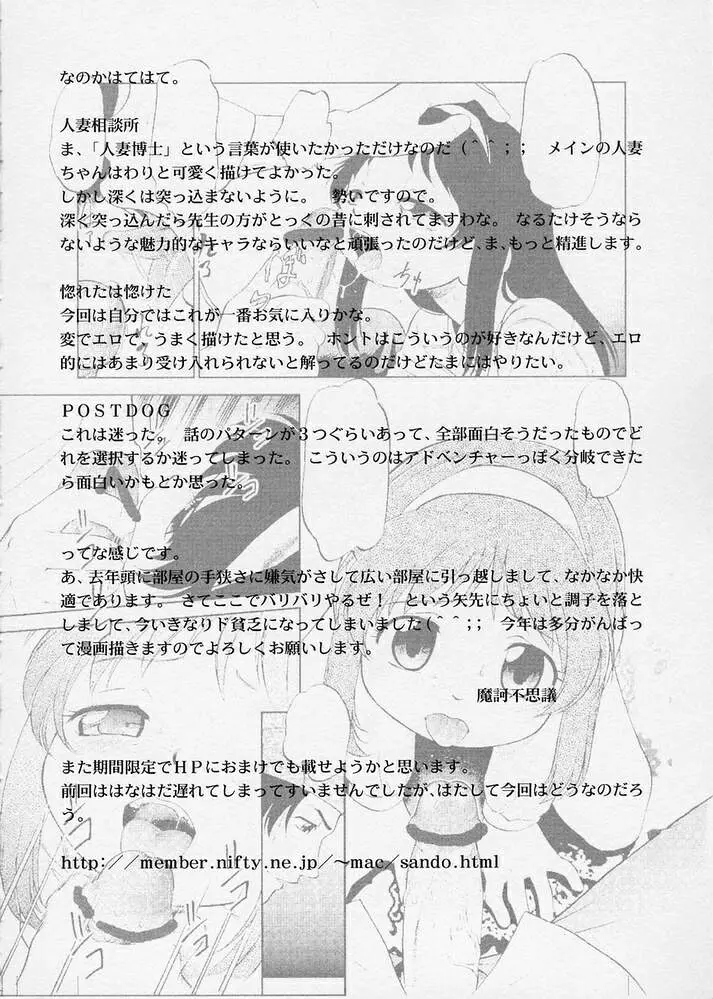 なのかはてはて。
人妻相談所
ま、「人妻博士」という言葉が使いたかっただけなのだ(＾＾；；　メインの人妻
ちゃんはわりと可愛く描けてよかった。
しかし深くは突っ込まないように。　勢いですので。
深く突っ込んだら先生の方がとっくの昔に刺されてますわな。　なるたけそうなら
ないような魅力的なキャラならいいなと頑張ったのだけど、ま、もっと精進します。
惚れたは惚けた
今回は自分ではこれが一番お気に入りかな。
変でエロで、うまく描けたと思う。　ホントはこういうのが好きなんだけど、エロ
的にはあまり受け入れられないと解ってるのだけどたまにはやりたい。
ＰＯＳＴＤＯＧ
これは迷った。　話のパターンが３つぐらいあって、全部面白そうだったものでど
れを選択するか迷ってしまった。　こういうのはアドベンチャーっぽく分岐できた
ら面白いかもとか思った。
ってな感じです。
あ、去年頭に部屋の手狭さに嫌気がさして広い部屋に引っ越しまして、なかなか快
適であります。　さてここでバリバリやるぜ！　という矢先にちょいと調子を落と
しまして、今いきなりド貧乏になってしまいました(＾＾；；　今年は多分がんばっ
て漫画描きますのでよろしくお願いします。
魔訶不思議
また期間限定でＨＰにおまけでも載せようかと思います。
前回ははなはだ遅れてしまってすいませんでしたが、はたして今回はどうなのだろ
う。
http://member.nifty.ne.jp/～mac/sando.html